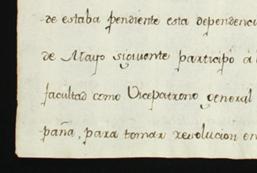 de estaba pendiente esta dependenci
de Mayo siguiente participó á
facultad como Vicepatrono general
paña, para tomar resolucion en